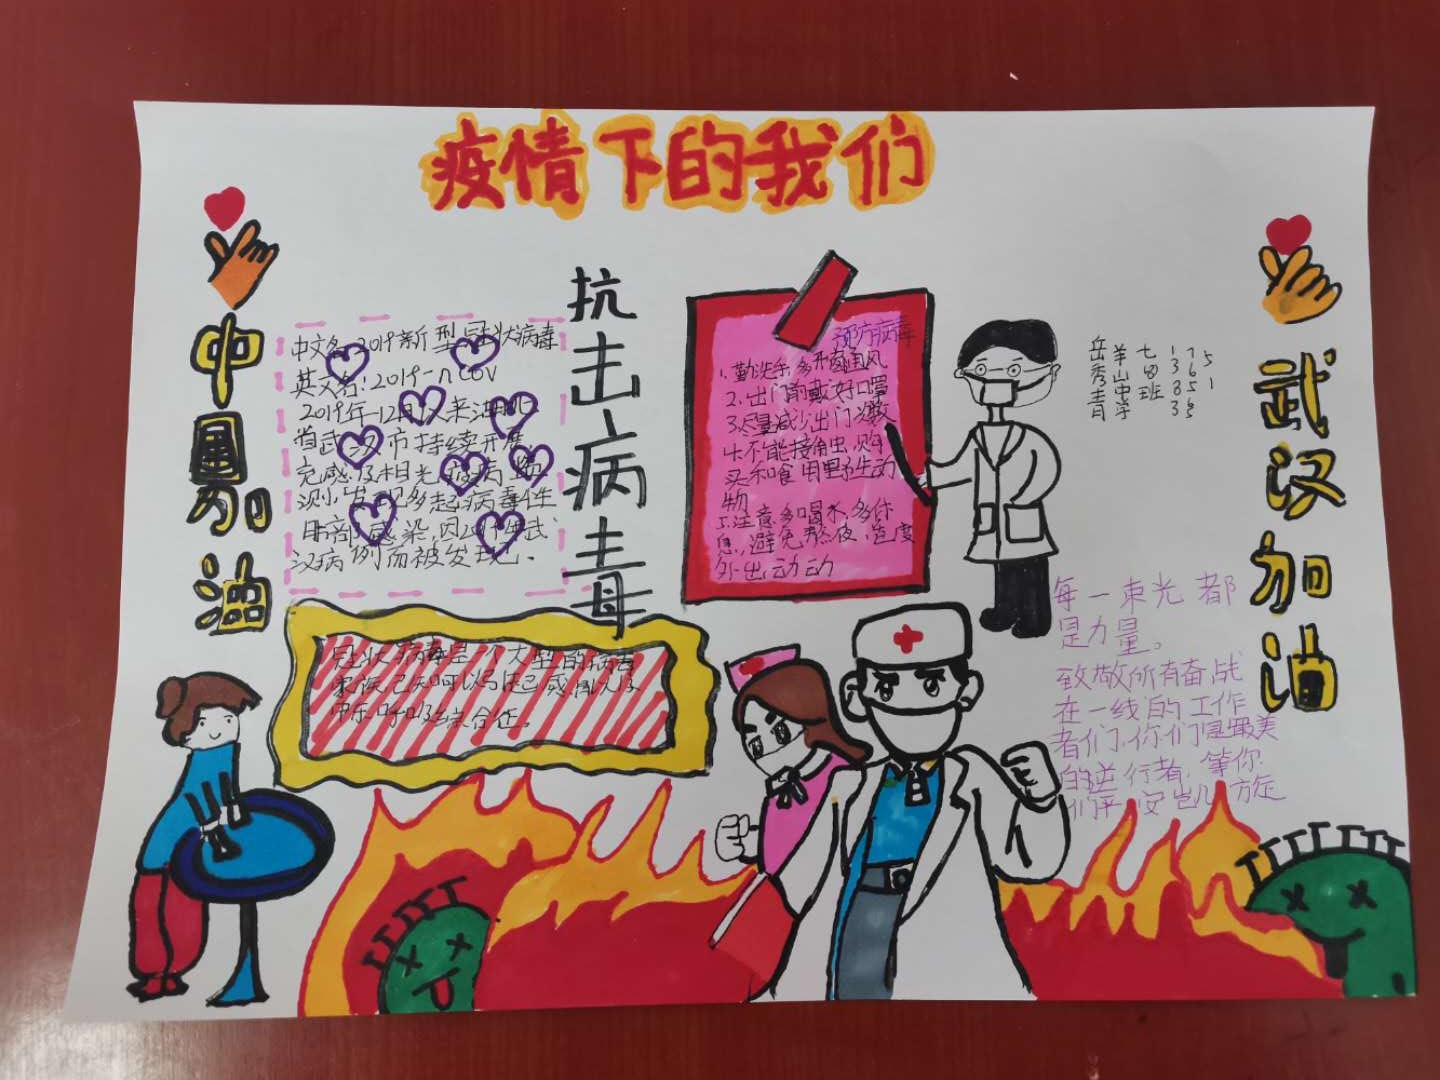 疫情下的我们
中国加油
中文名:2019新型冠状病毒
英文名:2019-nCOV
2019年12月以来,湖北
省武汉市持续开展
汉病例而被发现.
抗击病毒
预防病毒
1.勤洗手,多开窗通风
2.出门前戴好口罩
3.尽量减少出门次数
4.不能接触虫,购
买和食用野生动
物
5.注意多喝水,多休
息,避免熬夜,适度
外出,动动
岳羊七
秀山
青中班
学
每一束光都
是力量。
致敬所有奋战
在一线的工作
者们,你们是最美
的逆行者,等你
们平安凯旋
武汉加油
冠状病毒是一个大型的病毒
家族,已知可以引起感冒以及
中东呼吸综合征。